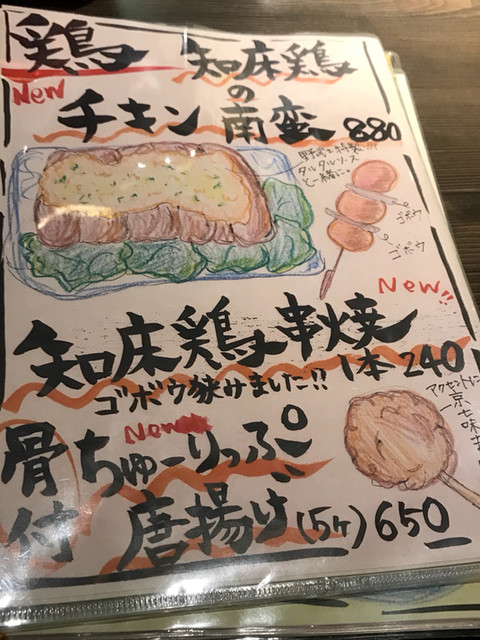 鶏 知床鶏
New の
チキン南蛮 880
野武士特製!!!
タルタルソース
と一緒に。
ゴボウ
ゴボウ
New!!
知床鶏串焼
ゴボウ狭けました!! 1本 240
New
骨付 ちゅーりっぷ
唐揚げ(5ヶ) 650
アクセントに
京七味